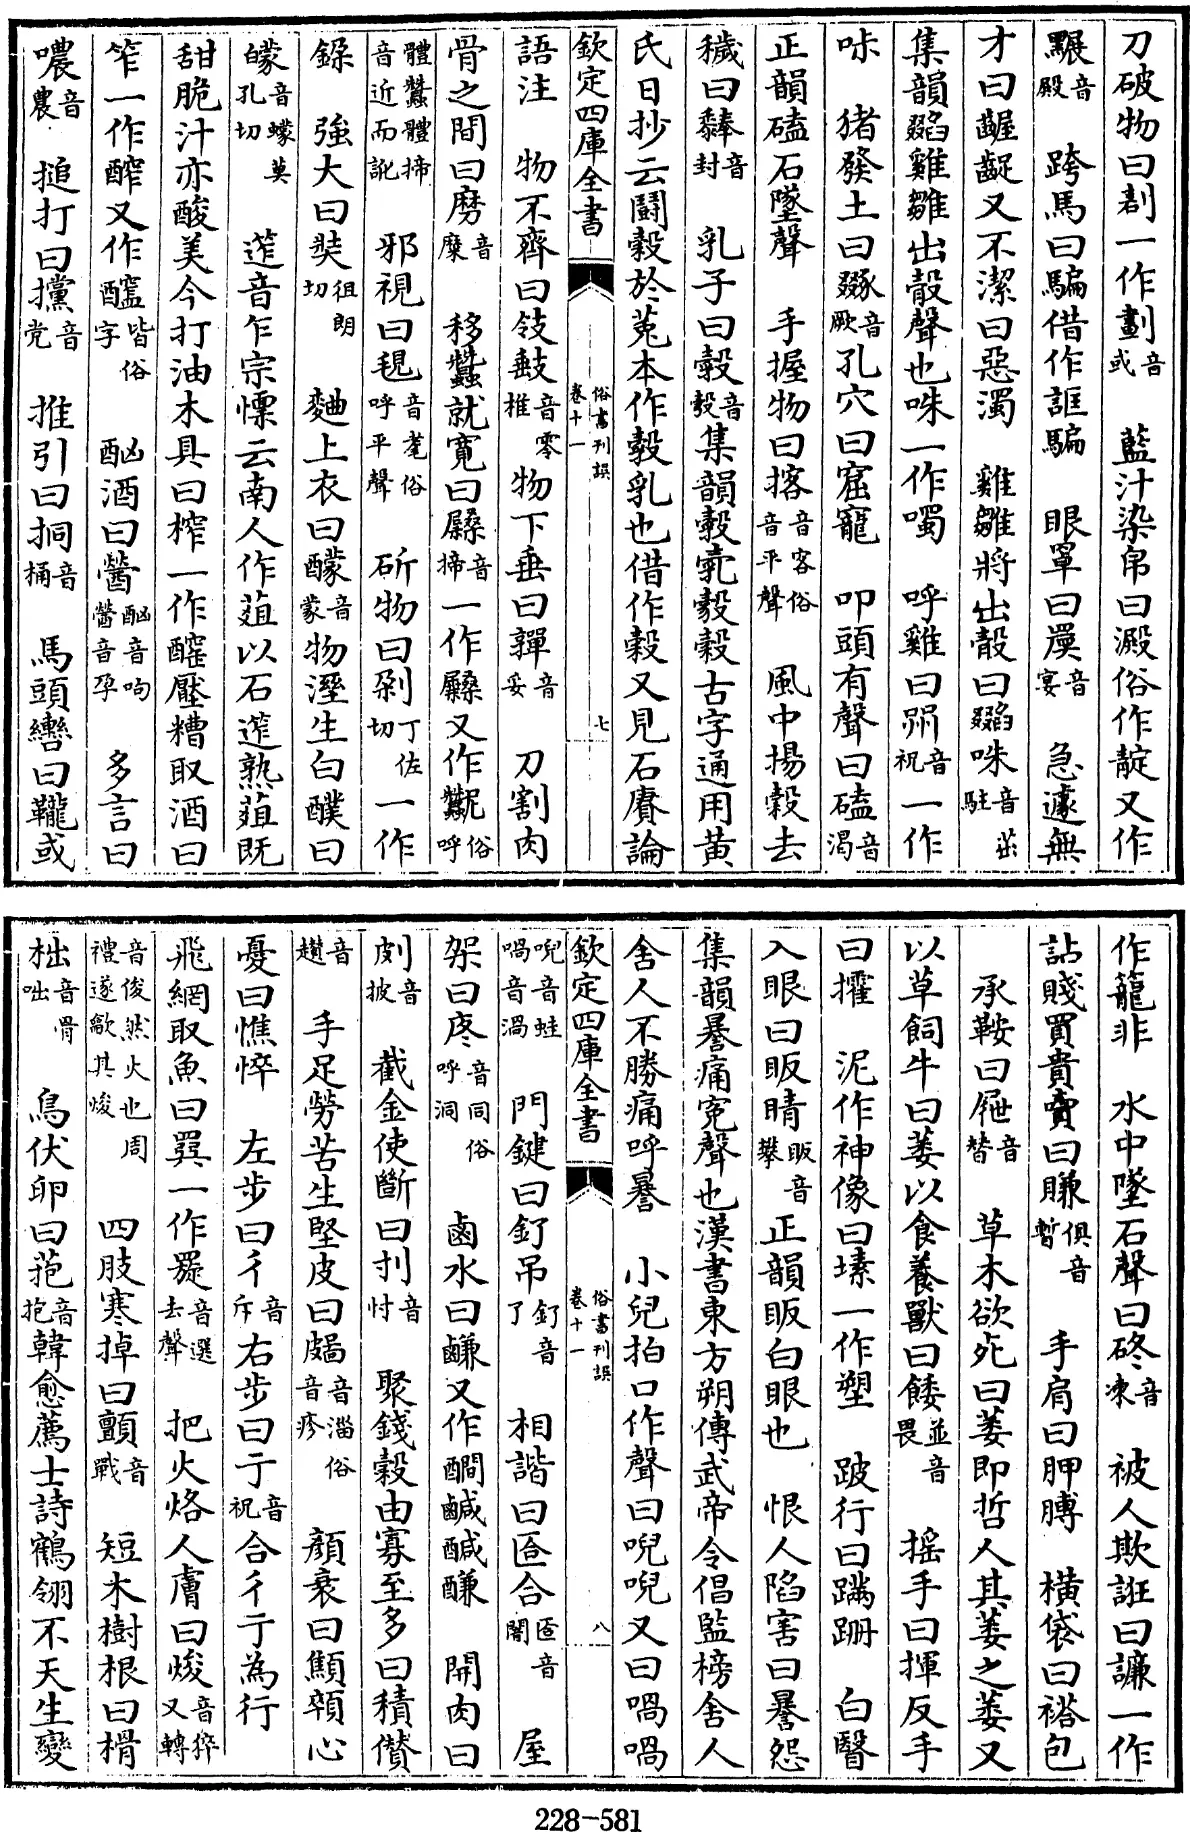 刀破物曰剨一作劃音或　藍汁染帛曰澱俗作靛又作
音殿　跨馬曰騙借作誆騙　眼罩曰音宴　急遽無
才曰齷齪又不潔曰惡濁　雞雛將出殻曰咮音驻
集韻雞雛出殻聲也咮一作噣　呼雞曰喌音祝一作
咮　猪發土曰音厥孔穴曰窟窿　叩頭有聲曰磕音渴
正韻磕石墜聲　手握物曰揢音客俗音平聲　風中揚穀去
穢曰音封　乳子曰㝅音㲉集韻㝅㝅古字通用黄
氏日抄云鬭㝅於菟本作㝅乳也借作穀又見石賡論
欽定四庫全書　俗書刊誤　卷十一　七
語注　物不齊曰音零椎物下垂曰嚲音妥　刀割肉
骨之間曰音糜　移蠶就寬曰音揥一作又作俗呼
體蠶體揥音近而訛　邪視曰音耄俗呼平聲　斫物曰剁丁佐切一作
　強大曰奘徂朗切　麯上衣曰醭音蒙物溼生白醭曰
音蠓莫孔切　音乍宗懍云南人作菹以石熟菹既
甜脆汁亦酸美今打油木具曰榨一作醡壓糟取酒曰
笮一作醡又作皆俗字　酗酒曰酗音呴音孕　多言曰
噥音農　搥打曰攩音党　推引曰挏音桶　馬頭轡曰鞴或
作籠非　水中墜石聲曰音凍　被人欺誑曰譧一作
詀賤買貴賣曰賺俱音暫　手肩曰胛膊　橫袋曰褡包
　承鞍曰屜音替　草木欲死曰萎即哲人其萎之萎又
以草飼牛曰萎以食養獸曰餧並音畏　搖手曰揮反手
曰攉　泥作神像曰塐一作塑　跛行曰蹣跚　白瞖
入眼曰眅睛眅音攀　正韻眅白眼也　恨人陷害曰怨
集韻痛寃聲也漢書東方朔傳武帝令倡監榜舍人
舍人不勝痛呼　小兒拍口作聲曰唲唲又曰喎喎
欽定四庫全書　俗書刊誤　卷十一　八
唲音蛙喎音渦　門鍵曰釕吊釕音了　相諧曰匼合匼音闇　屋
架曰庝音同俗呼洞　鹵水曰鹻又作鹹醎　開肉曰
音披　截金使斷曰刌音忖　聚錢穀由寡至多曰積儧
音趲　手足勞苦生堅皮曰音淄俗音疹　顔衰曰顦顇心
憂曰憔悴　左步曰彳音斥右步曰亍音祝合彳亍為行
　飛網取魚曰一作音選去聲　把火烙人膚曰焌音猝又轉
音俊然火也周禮遂龡其焌　四肢寒掉曰顫音戰　短木樹根曰榾
柮音骨咄　鳥伏卵曰菢音抱韓愈薦士詩鶴翎不天生變
228-581